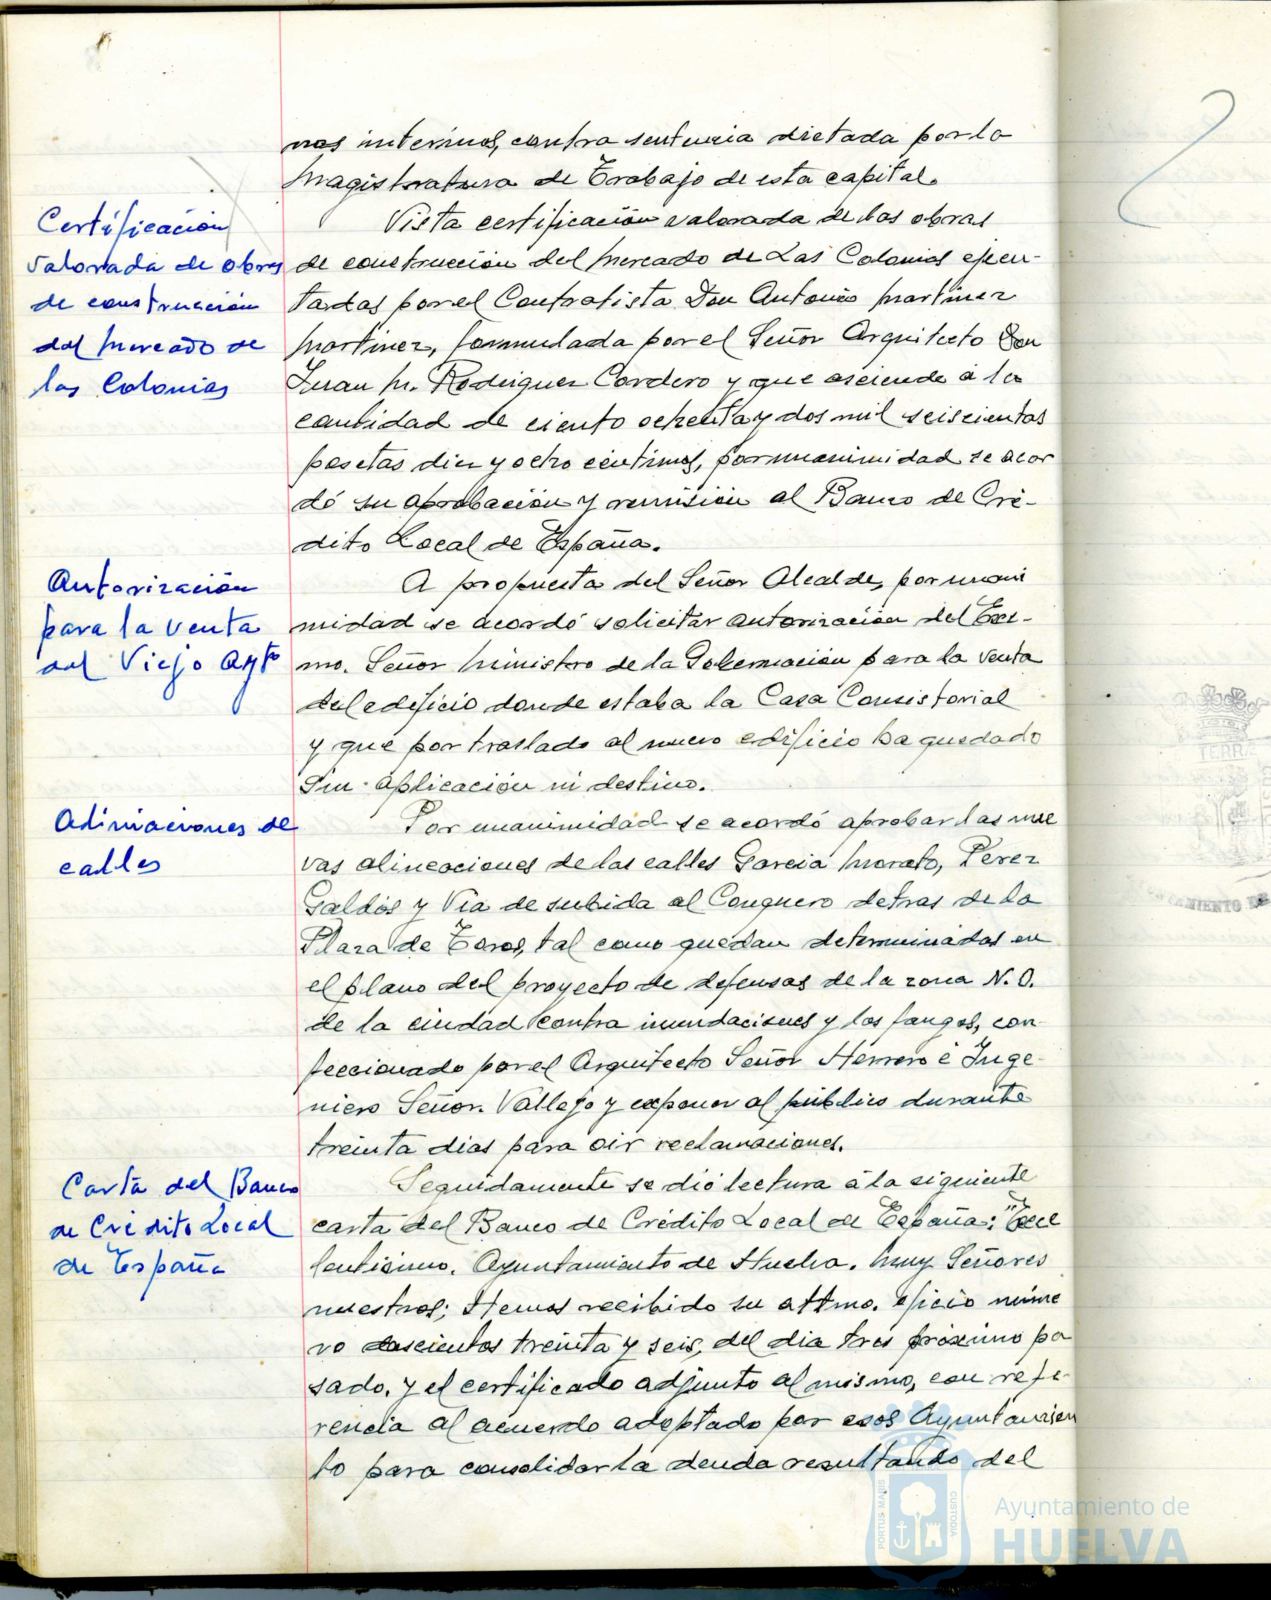 nos interinos, contra sentencia dictada por la
Magistratura de Trabajo de esta capital.
Certificación
valorada de obras
de construcción
del Mercado de
las Colonias
Vista certificación valorada de las obras
de construcción del Mercado de Las Colonias ejecu-
tadas por el Contratista Don Antonio Martinez
Martinez, formulada por el Señor Arquitecto Don
Juan M. Rodriguez Cordero y que asciende á la
cantidad de ciento ochenta y dos mil seiscientas
pesetas diez y ocho céntimos, por unanimidad se acor
dó su aprobación y remisión al Banco de Cré-
dito Local de España.
Autorización
para la venta
del Viejo Aytº
A propuesta del Señor Alcalde, por unani
midad se acordó solicitar autorización del Exc-
mo. Señor Ministro de la Gobernación para la venta
del edificio donde estaba la Casa Consistorial
y que por traslado al nuevo edificio ha quedado
sin aplicación ni destino.
Alineaciones de
calles
Por unanimidad se acordó aprobar las nue
vas alineaciones de las calles Garcia Morato, Perez
Galdós y Via de subida al Conquero detras de la
Plaza de Toros, tal como quedan determinadas en
el plano del proyecto de defensas de la zona N.O.
de la ciudad contra inundaciones y los fangos, con-
feccionado por el Arquitecto Señor Herrero é Inge-
niero Señor Vallejo y exponer al público durante
treinta dias para oir reclamaciones.
Carta del Banco
de Crédito Local
de España
Seguidamente se dió lectura á la siguiente
carta del Banco de Crédito Local de España: "Exce
lentisimo. Ayuntamiento de Huelva. Muy Señores
nuestros; Hemos recibido su attmo. oficio núme
ro doscientos treinta y seis, del dia tres próximo pa
sado, y el certificado adjunto al mismo, con refe-
rencia al acuerdo adoptado por esos Ayuntamien
to para consolidar la deuda resultando del
TERRÆ
PORTUS MARIS
CUSTODIA
Ayuntamiento de
HUELVA